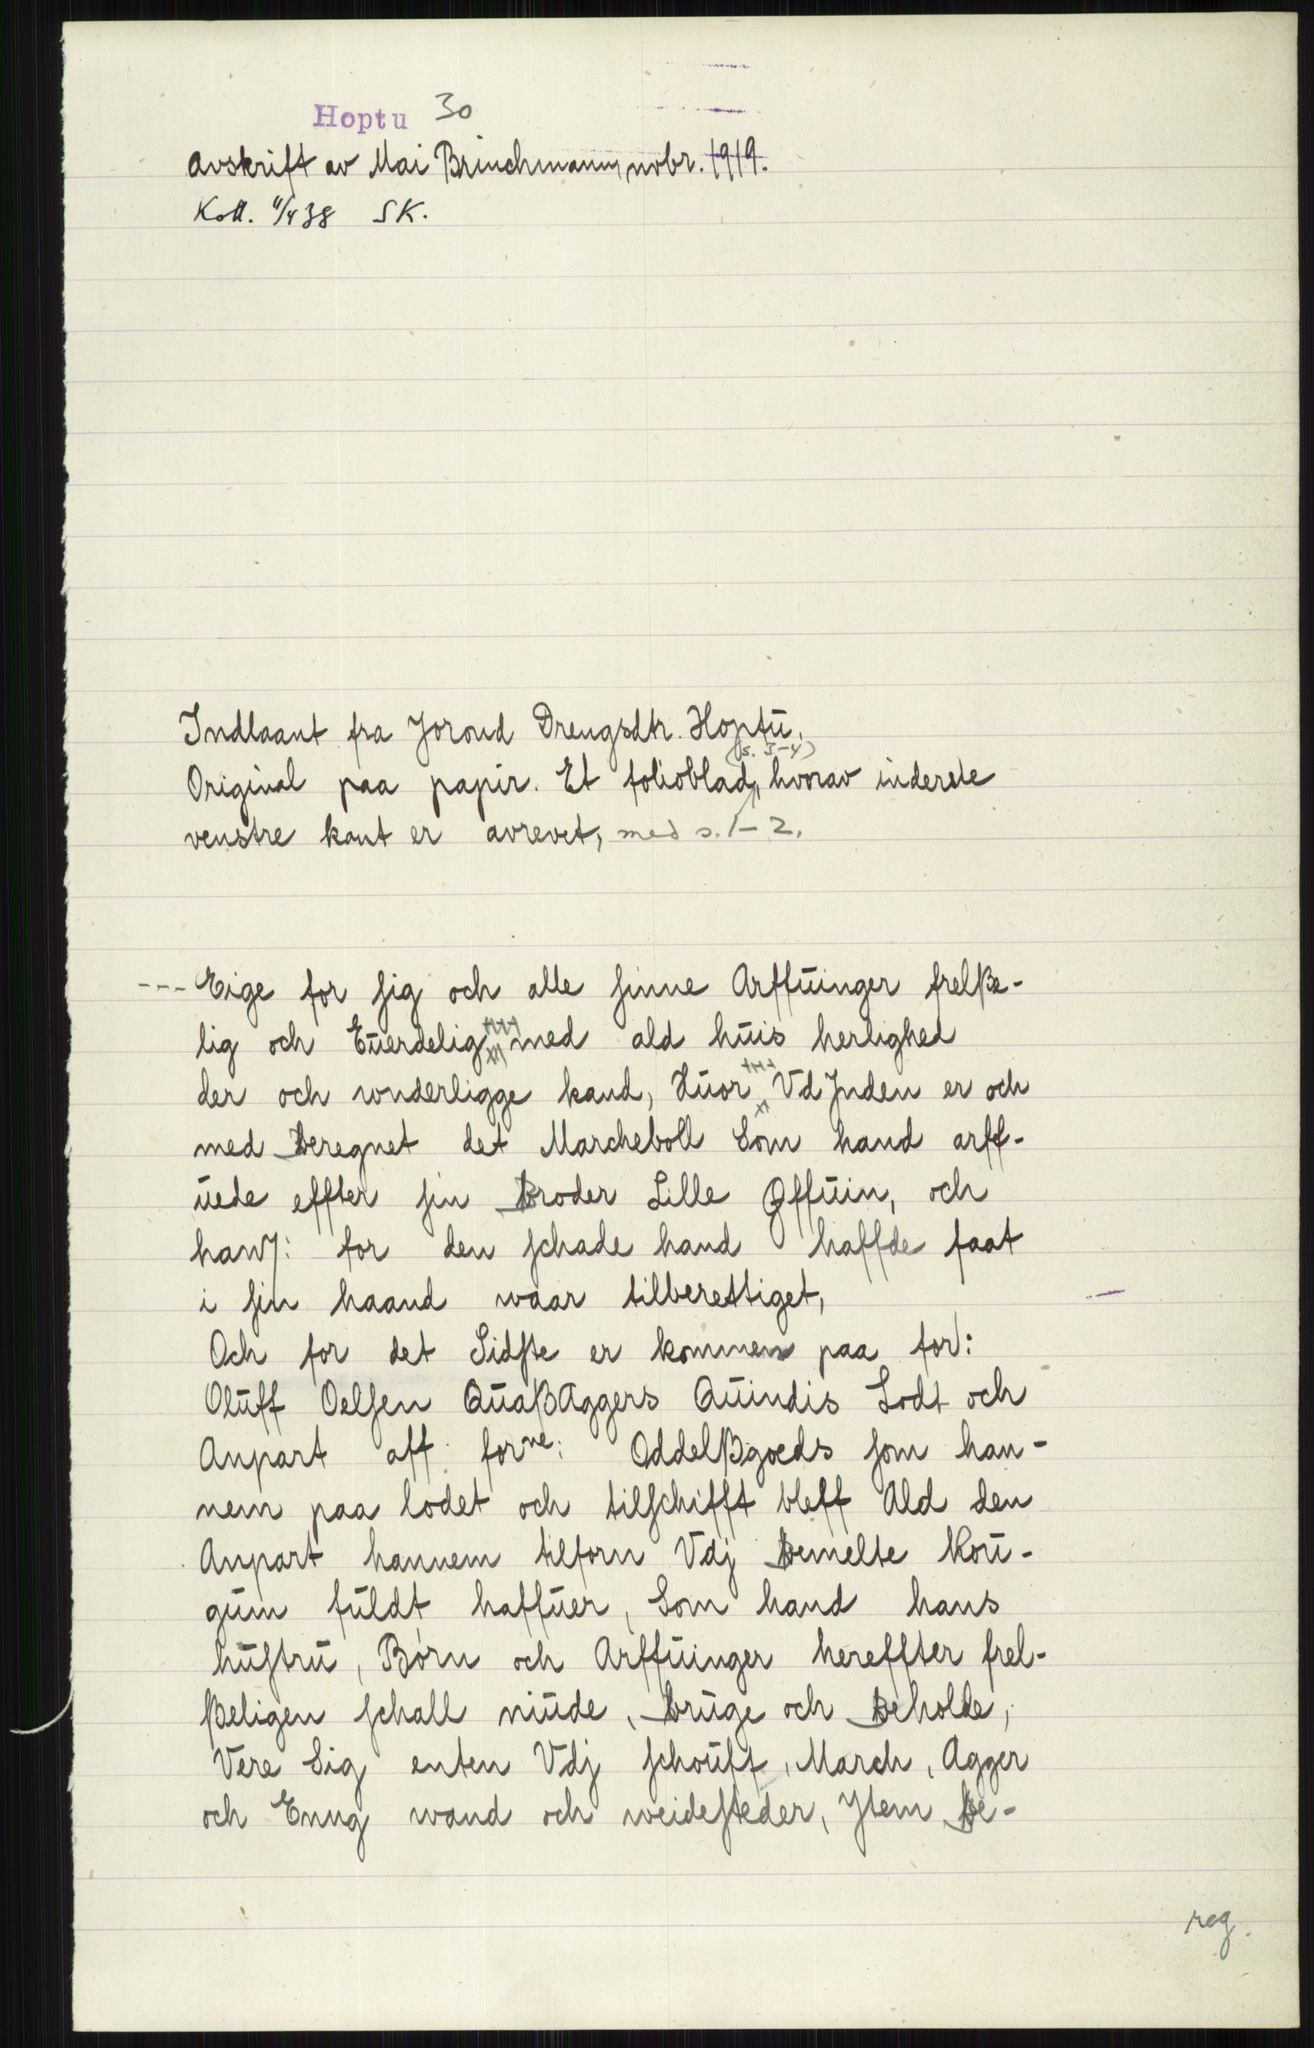 Hoptu 30
Avskrift av Mai Brinchmann, novbr. 1919.
Koll. 11/4 38 SK.
Indlaant fra Jorond Drengsdtr. Hoptū.
(s. 3-4)
Original paa papir. Et folioblad, hvorav inderste
venstre kant er avrevet, med s. 1-2.
--- Eige for sig och alle sinne Arffūinger frelsße-
lig och Eūerdelig med ald hūis herlighed
der och wnderligge kand, Hūor Vd Jnden er och
med Beregnet det Marcheboll Som hand arff-
ūede effter sin Broder Lille Øffūin, och
hanß: for den schade hand haffde faat
i sin haand waar tilberettiget,
Och for det Sidste er kommen paa for:
Olūff Oelsen Qūaßaggers Qūindis Lodt och
Anpart aff forne: Oddelßgoeds som han-
nem paa lodet och tilschifft bleff Ald den
Anpart hannem tilforn Vdj Bemelte Koū-
gūm fūldt haffūer, Som hand hans
hūstrū, Børn och Arffūinger hereffter frel-
ßeligen schall niūde, Brūge och Beholde,
Vere Sig enten Vdj schoūff, March, Agger
och Enng wand och weidesteder, Jtem Be-
reg.